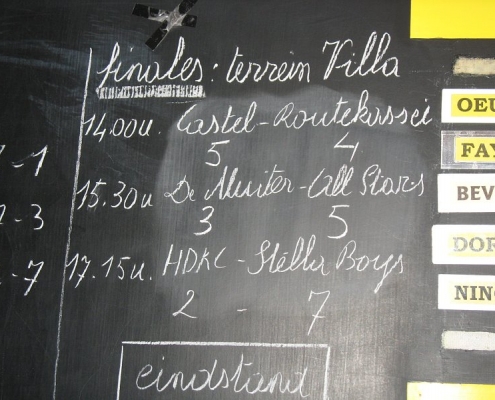 finales: terrein Villa
14.00u. Castel-Routekassei
5 4
15.30u De Muiter-All Stars
3 5
17.15u. HDKC - Stella Boys
2 - 7
eindstand
-1
-3
-7
OEU
FAY
BEV
DOR
NINO